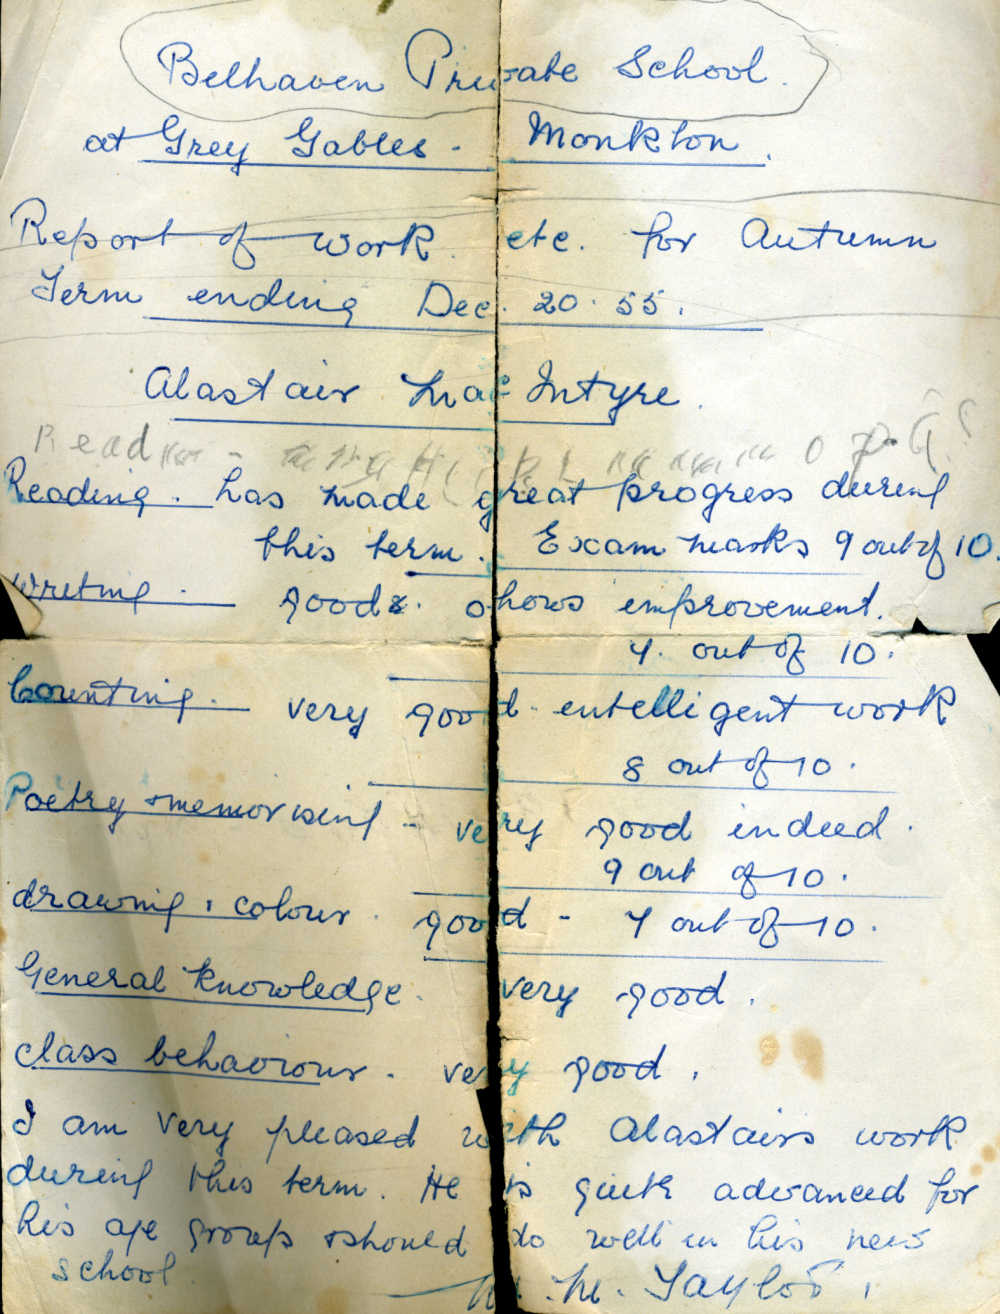 Belhaven Private School.
at Grey Gables - Monkton.
Report of work. etc. for Autumn
Term ending Dec. 20. 55.
Alastair MacIntyre.
Read
Reading. has made great progress during
this term. Exam marks 9 out of 10.
Writing. good. shows improvement.
7. out of 10.
Counting. very good. intelligent work
8 out of 10.
Poetry memorising - very good indeed.
9 out of 10.
drawing, colour. good - 7 out of 10.
General knowledge. very good.
class behaviour. very good.
I am very pleased with Alastairs work
during this term. He is quite advanced for
his age group & should do well in his new
school. M. Taylor.